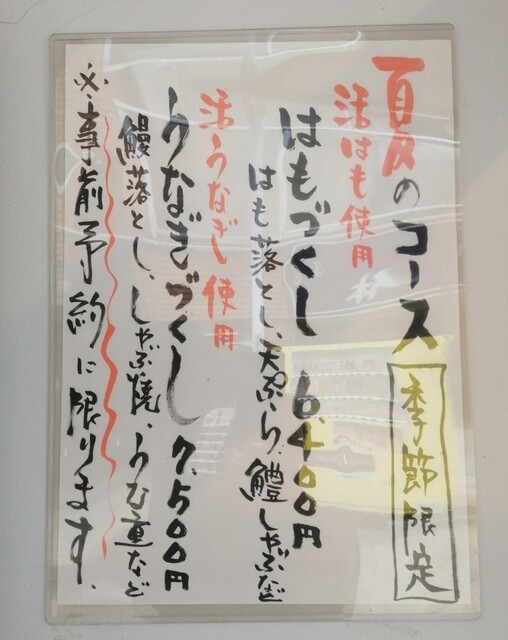 夏のコース 季節限定
活はも使用
はもづくし 6,400円
はも落とし、天ぷら、鱧しゃぶなど
活うなぎ使用
うなぎづくし 7,500円
鰻落とし、しゃぶ焼、うな重など
※事前予約に限ります。